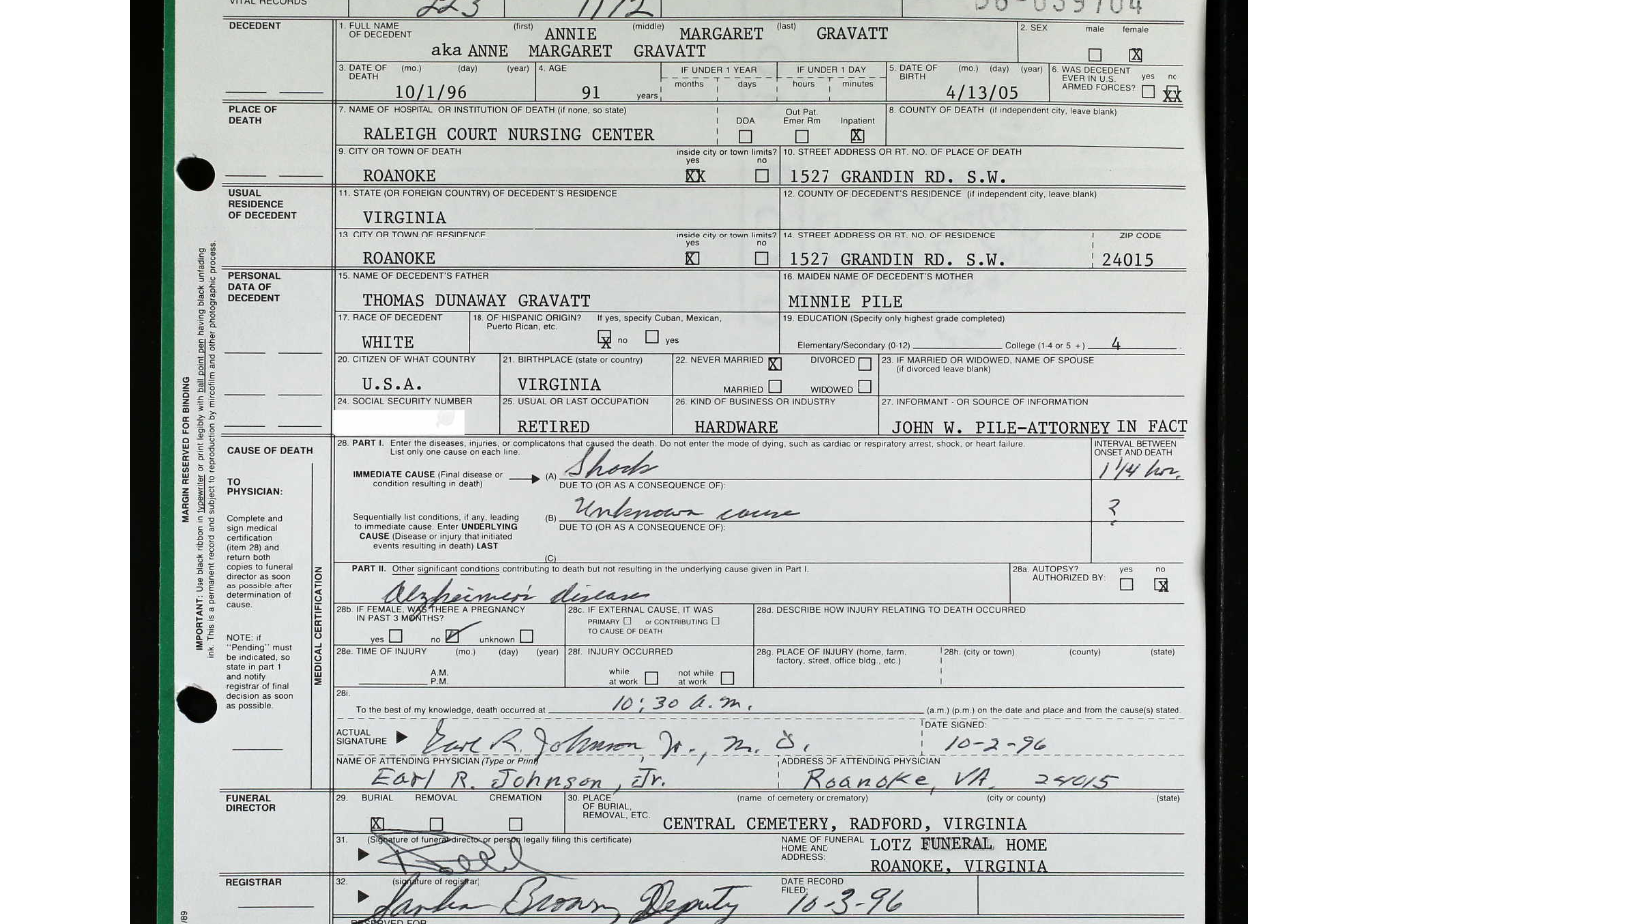 VITAL RECORDS 223 1172 96-039704
DECEDENT 1. FULL NAME OF DECEDENT (first) ANNIE (middle) MARGARET (last) GRAVATT 2. SEX male female X
aka ANNE MARGARET GRAVATT
3. DATE OF DEATH (mo.) (day) (year) 4. AGE IF UNDER 1 YEAR IF UNDER 1 DAY 5. DATE OF BIRTH (mo.) (day) (year) 6. WAS DECEDENT EVER IN U.S. ARMED FORCES? yes no
10/1/96 91 years months days hours minutes 4/13/05 XX
PLACE OF DEATH 7. NAME OF HOSPITAL OR INSTITUTION OF DEATH (if none, so state) DOA Out Pat. Emer Rm Inpatient 8. COUNTY OF DEATH (if independent city, leave blank)
RALEIGH COURT NURSING CENTER X
9. CITY OR TOWN OF DEATH inside city or town limits? yes no 10. STREET ADDRESS OR RT. NO. OF PLACE OF DEATH
ROANOKE XX 1527 GRANDIN RD. S.W.
USUAL RESIDENCE OF DECEDENT 11. STATE (OR FOREIGN COUNTRY) OF DECEDENT'S RESIDENCE 12. COUNTY OF DECEDENT'S RESIDENCE (if independent city, leave blank)
VIRGINIA
13. CITY OR TOWN OF RESIDENCE inside city or town limits? yes no 14. STREET ADDRESS OR RT. NO. OF RESIDENCE ZIP CODE
ROANOKE X 1527 GRANDIN RD. S.W. 24015
PERSONAL DATA OF DECEDENT 15. NAME OF DECEDENT'S FATHER 16. MAIDEN NAME OF DECEDENT'S MOTHER
THOMAS DUNAWAY GRAVATT MINNIE PILE
17. RACE OF DECEDENT 18. OF HISPANIC ORIGIN? If yes, specify Cuban, Mexican, Puerto Rican, etc. 19. EDUCATION (Specify only highest grade completed)
WHITE X no yes Elementary/Secondary (0-12) College (1-4 or 5 +) 4
20. CITIZEN OF WHAT COUNTRY 21. BIRTHPLACE (state or country) 22. NEVER MARRIED X DIVORCED 23. IF MARRIED OR WIDOWED, NAME OF SPOUSE (if divorced leave blank)
U.S.A. VIRGINIA MARRIED WIDOWED
24. SOCIAL SECURITY NUMBER 25. USUAL OR LAST OCCUPATION 26. KIND OF BUSINESS OR INDUSTRY 27. INFORMANT - OR SOURCE OF INFORMATION
RETIRED HARDWARE JOHN W. PILE-ATTORNEY IN FACT
CAUSE OF DEATH 28. PART I. Enter the diseases, injuries, or complicatons that caused the death. Do not enter the mode of dying, such as cardiac or respiratory arrest, shock, or heart failure. INTERVAL BETWEEN ONSET AND DEATH
List only one cause on each line.
IMMEDIATE CAUSE (Final disease or condition resulting in death) (A) Shock 1 1/4 hr.
DUE TO (OR AS A CONSEQUENCE OF):
Sequentially list conditions, if any, leading to immediate cause. Enter UNDERLYING CAUSE (Disease or injury that initiated events resulting in death) LAST (B) Unknown cause ?
DUE TO (OR AS A CONSEQUENCE OF):
(C)
TO PHYSICIAN:
Complete and sign medical certification (item 28) and return both copies to funeral director as soon as possible after determination of cause.
NOTE: if "Pending" must be indicated, so state in part 1 and notify registrar of final decision as soon as possible.
MEDICAL CERTIFICATION
PART II. Other significant conditions contributing to death but not resulting in the underlying cause given in Part I. 28a. AUTOPSY? AUTHORIZED BY: yes no X
Alzheimer's disease
28b. IF FEMALE, WAS THERE A PREGNANCY IN PAST 3 MONTHS? 28c. IF EXTERNAL CAUSE, IT WAS 28d. DESCRIBE HOW INJURY RELATING TO DEATH OCCURRED
yes no unknown PRIMARY or CONTRIBUTING TO CAUSE OF DEATH
28e. TIME OF INJURY (mo.) (day) (year) 28f. INJURY OCCURRED 28g. PLACE OF INJURY (home, farm, factory, street, office bldg., etc.) 28h. (city or town) (county) (state)
A.M. P.M. while at work not while at work
28i. To the best of my knowledge, death occurred at 10:30 a.m. (a.m.) (p.m.) on the date and place and from the cause(s) stated.
ACTUAL SIGNATURE Earl R. Johnson Jr., M.D. DATE SIGNED: 10-2-96
NAME OF ATTENDING PHYSICIAN (Type or Print) ADDRESS OF ATTENDING PHYSICIAN
Earl R. Johnson, Jr. Roanoke, VA. 24015
FUNERAL DIRECTOR 29. BURIAL REMOVAL CREMATION 30. PLACE OF BURIAL, REMOVAL, ETC. (name of cemetery or crematory) (city or county) (state)
X CENTRAL CEMETERY, RADFORD, VIRGINIA
31. (Signature of funeral director or person legally filing this certificate) NAME OF FUNERAL HOME AND ADDRESS: LOTZ FUNERAL HOME
ROANOKE, VIRGINIA
REGISTRAR 32. (signature of registrar) DATE RECORD FILED:
Brown, Deputy 10-3-96
RESERVED FOR
MARGIN RESERVED FOR BINDING
IMPORTANT: Use black ribbon in typewriter or print legibly with ball point pen having black unfading
ink. This is a permanent record and subject to reproduction by mircofilm and other photographic process.
/89